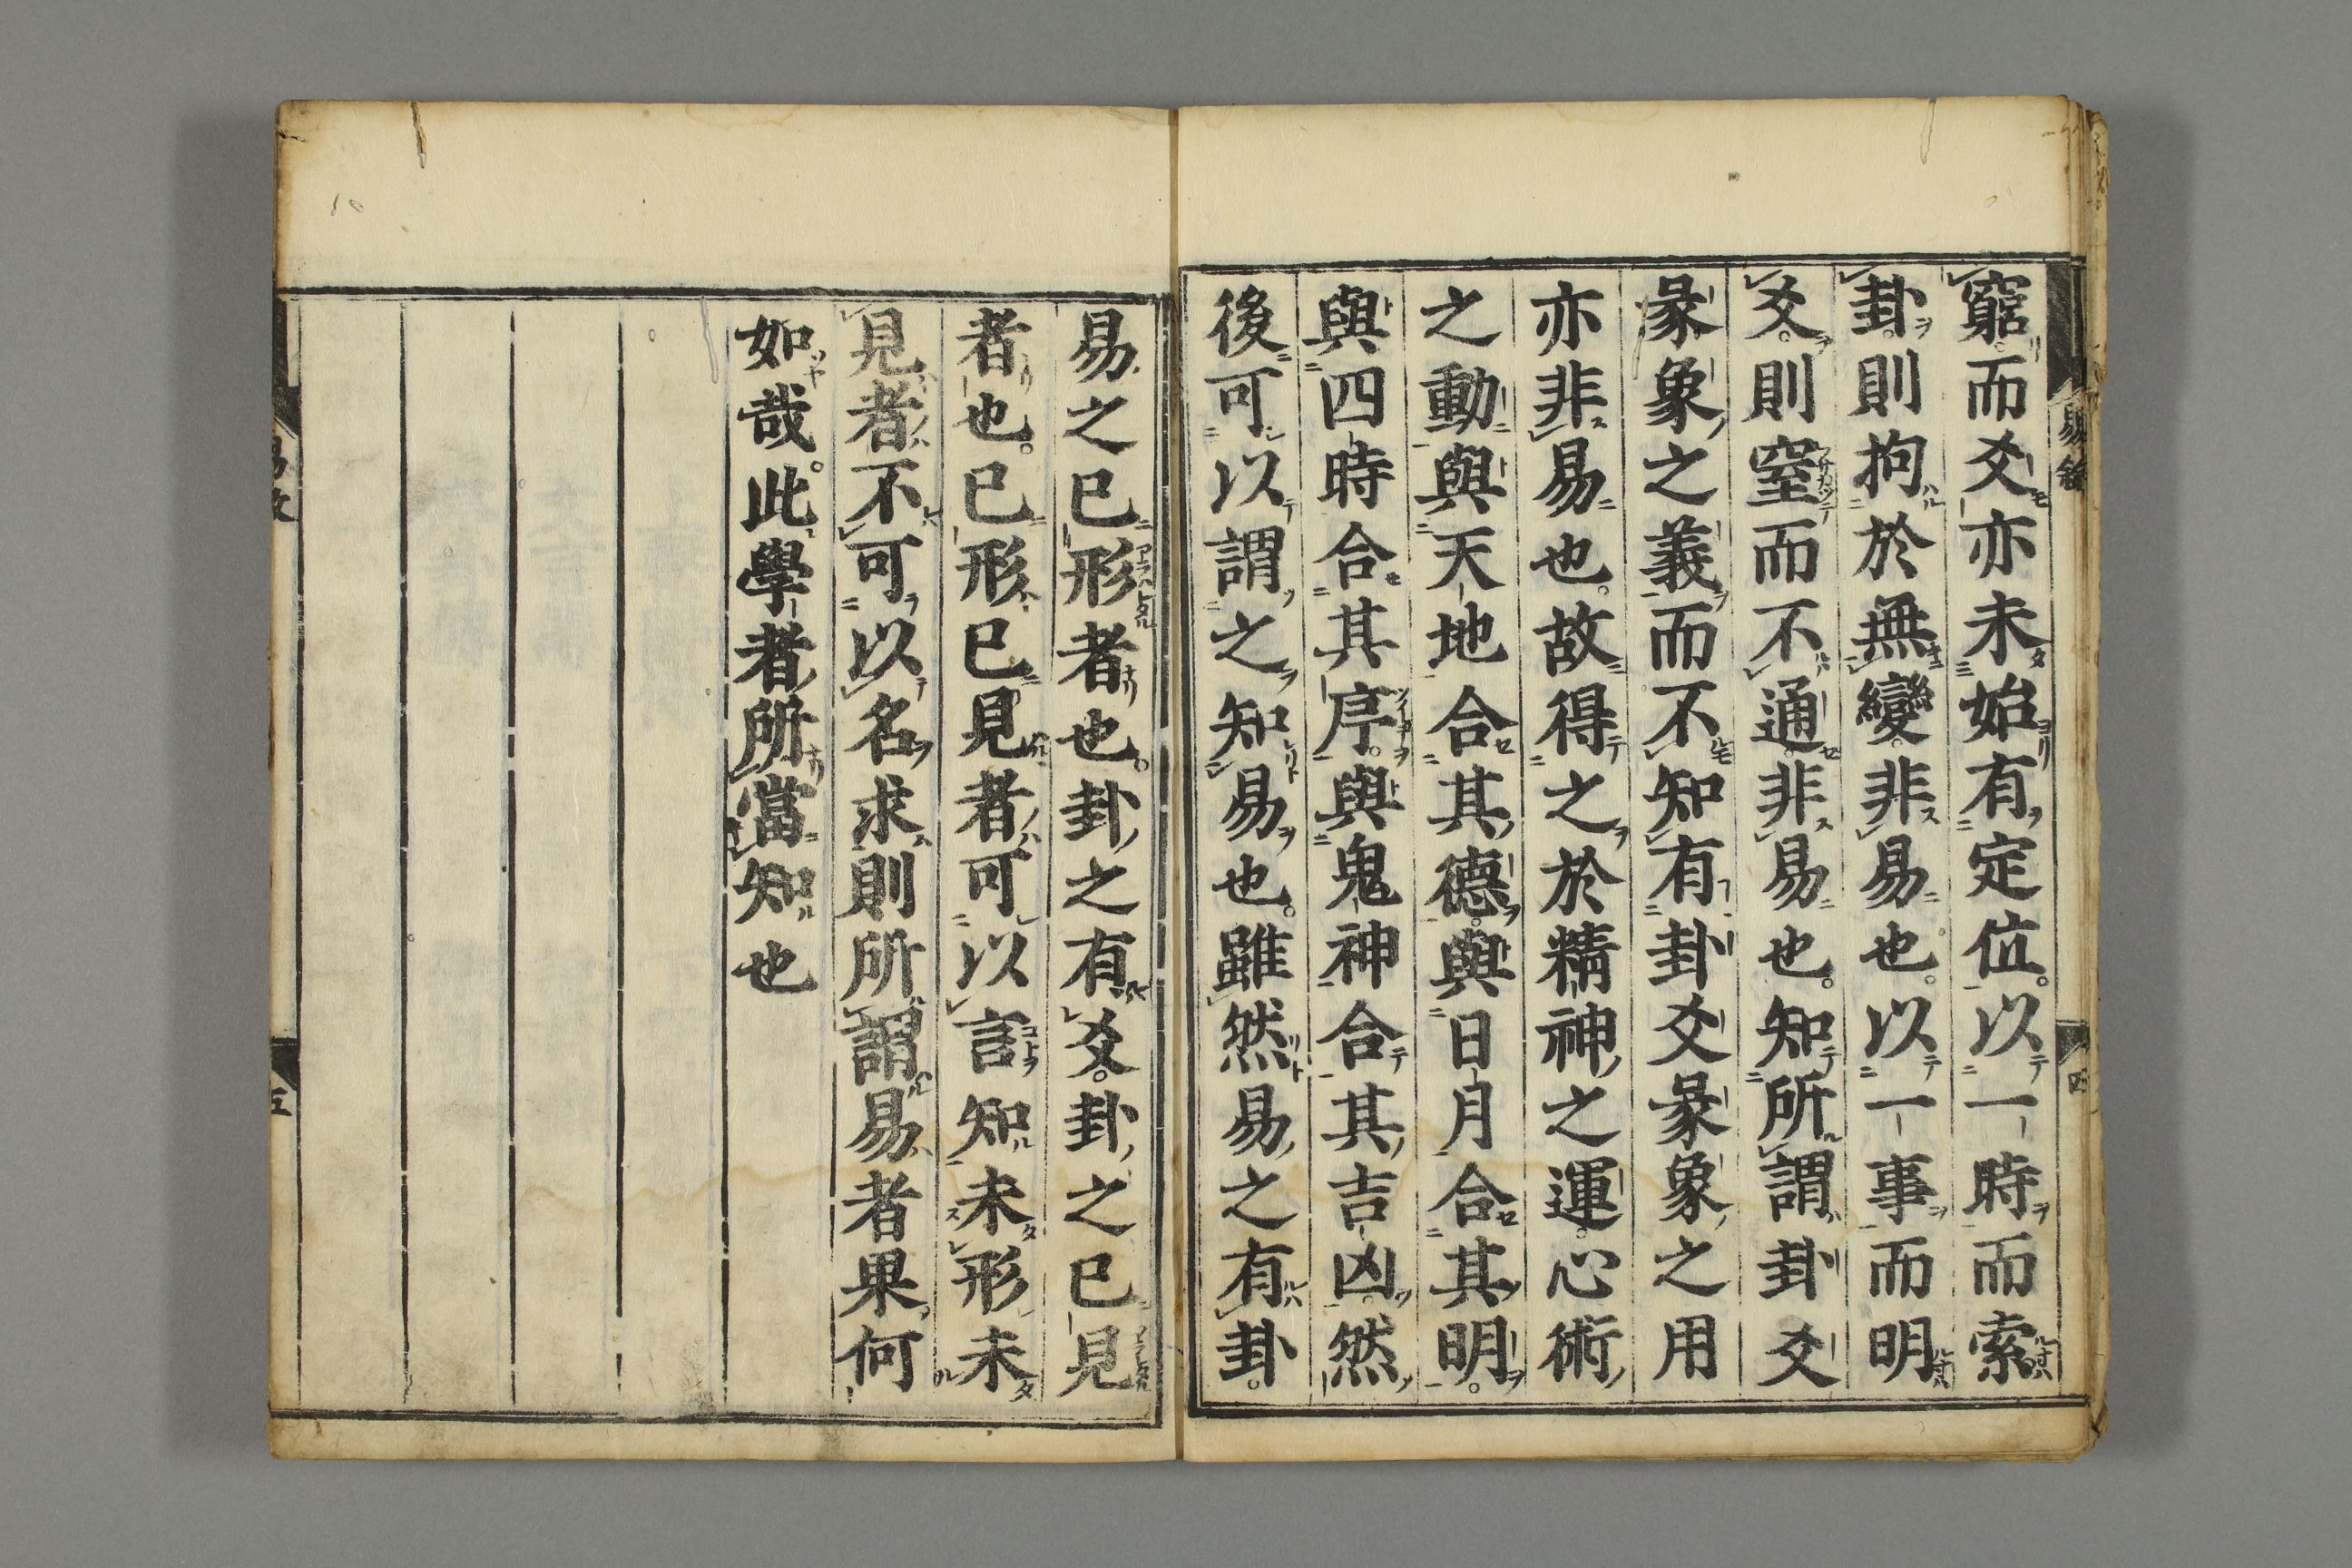 窮而爻亦未始有定位。以一時而索
卦。則拘於無變。非易也。以一事而明
爻。則窒而不通。非易也。知所謂卦爻
彖象之義而不知有卦爻彖象之用
亦非易也。故得之於精神之運。心術
之動。與天地合其德。與日月合其明。
與四時合其序。與鬼神合其吉凶。然
後可以謂之知易也。雖然易之有卦。
易之已形者也。卦之有爻。卦之已見
者也。已形已見者可以言知未形未
見者不可以名求則所謂易者果何
如哉。此學者所當知也